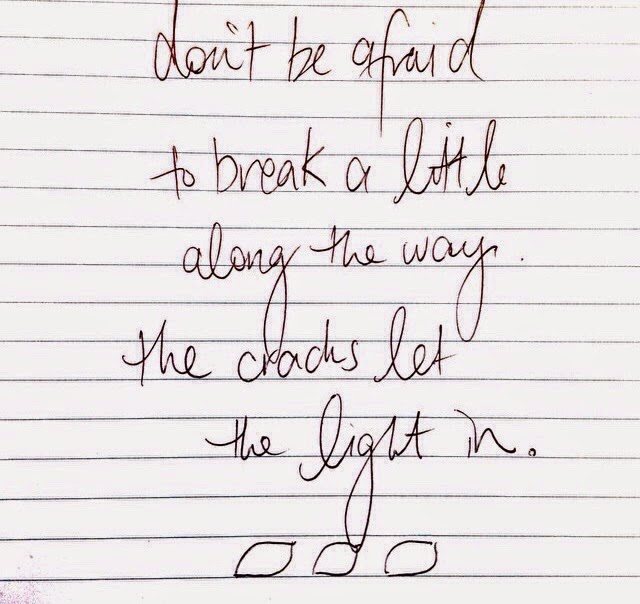 don't be afraid
to break a little
along the way.
the cracks let
the light in.